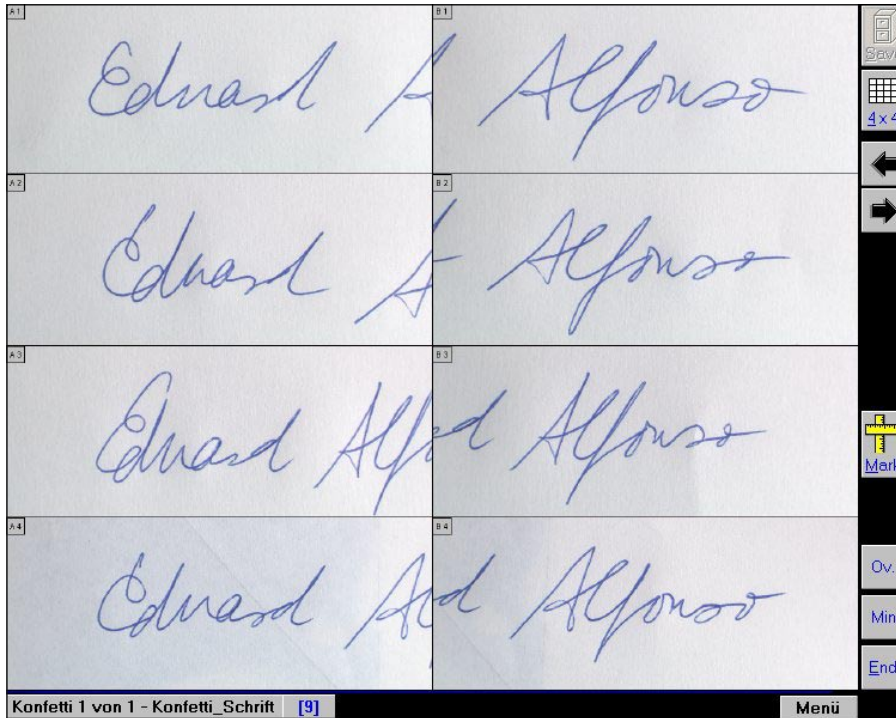 A1 Eduard A
B1 Alfonso
Save
4 x 4
A2 Eduard A
B2 Alfonso
A3 Eduard Alfo
B3 d Alfonso
Mark
A4 Eduard Al
B4 d Alfonso
Ov.
Min
End
Konfetti 1 von 1 - Konfetti_Schrift [9] Menü